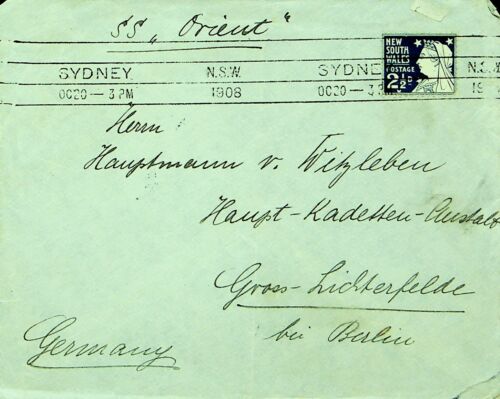 SS „Orient"
NEW
SOUTH
WALES
POSTAGE
2½D
SYDNEY N.S.W. SYDNEY N.S.W.
OC20—3 PM 1908 OC20—3 PM 19
Herrn
Hauptmann v. Witzleben
Haupt-Kadetten-Anstalt
Gross-Lichterfelde
bei Berlin
Germany